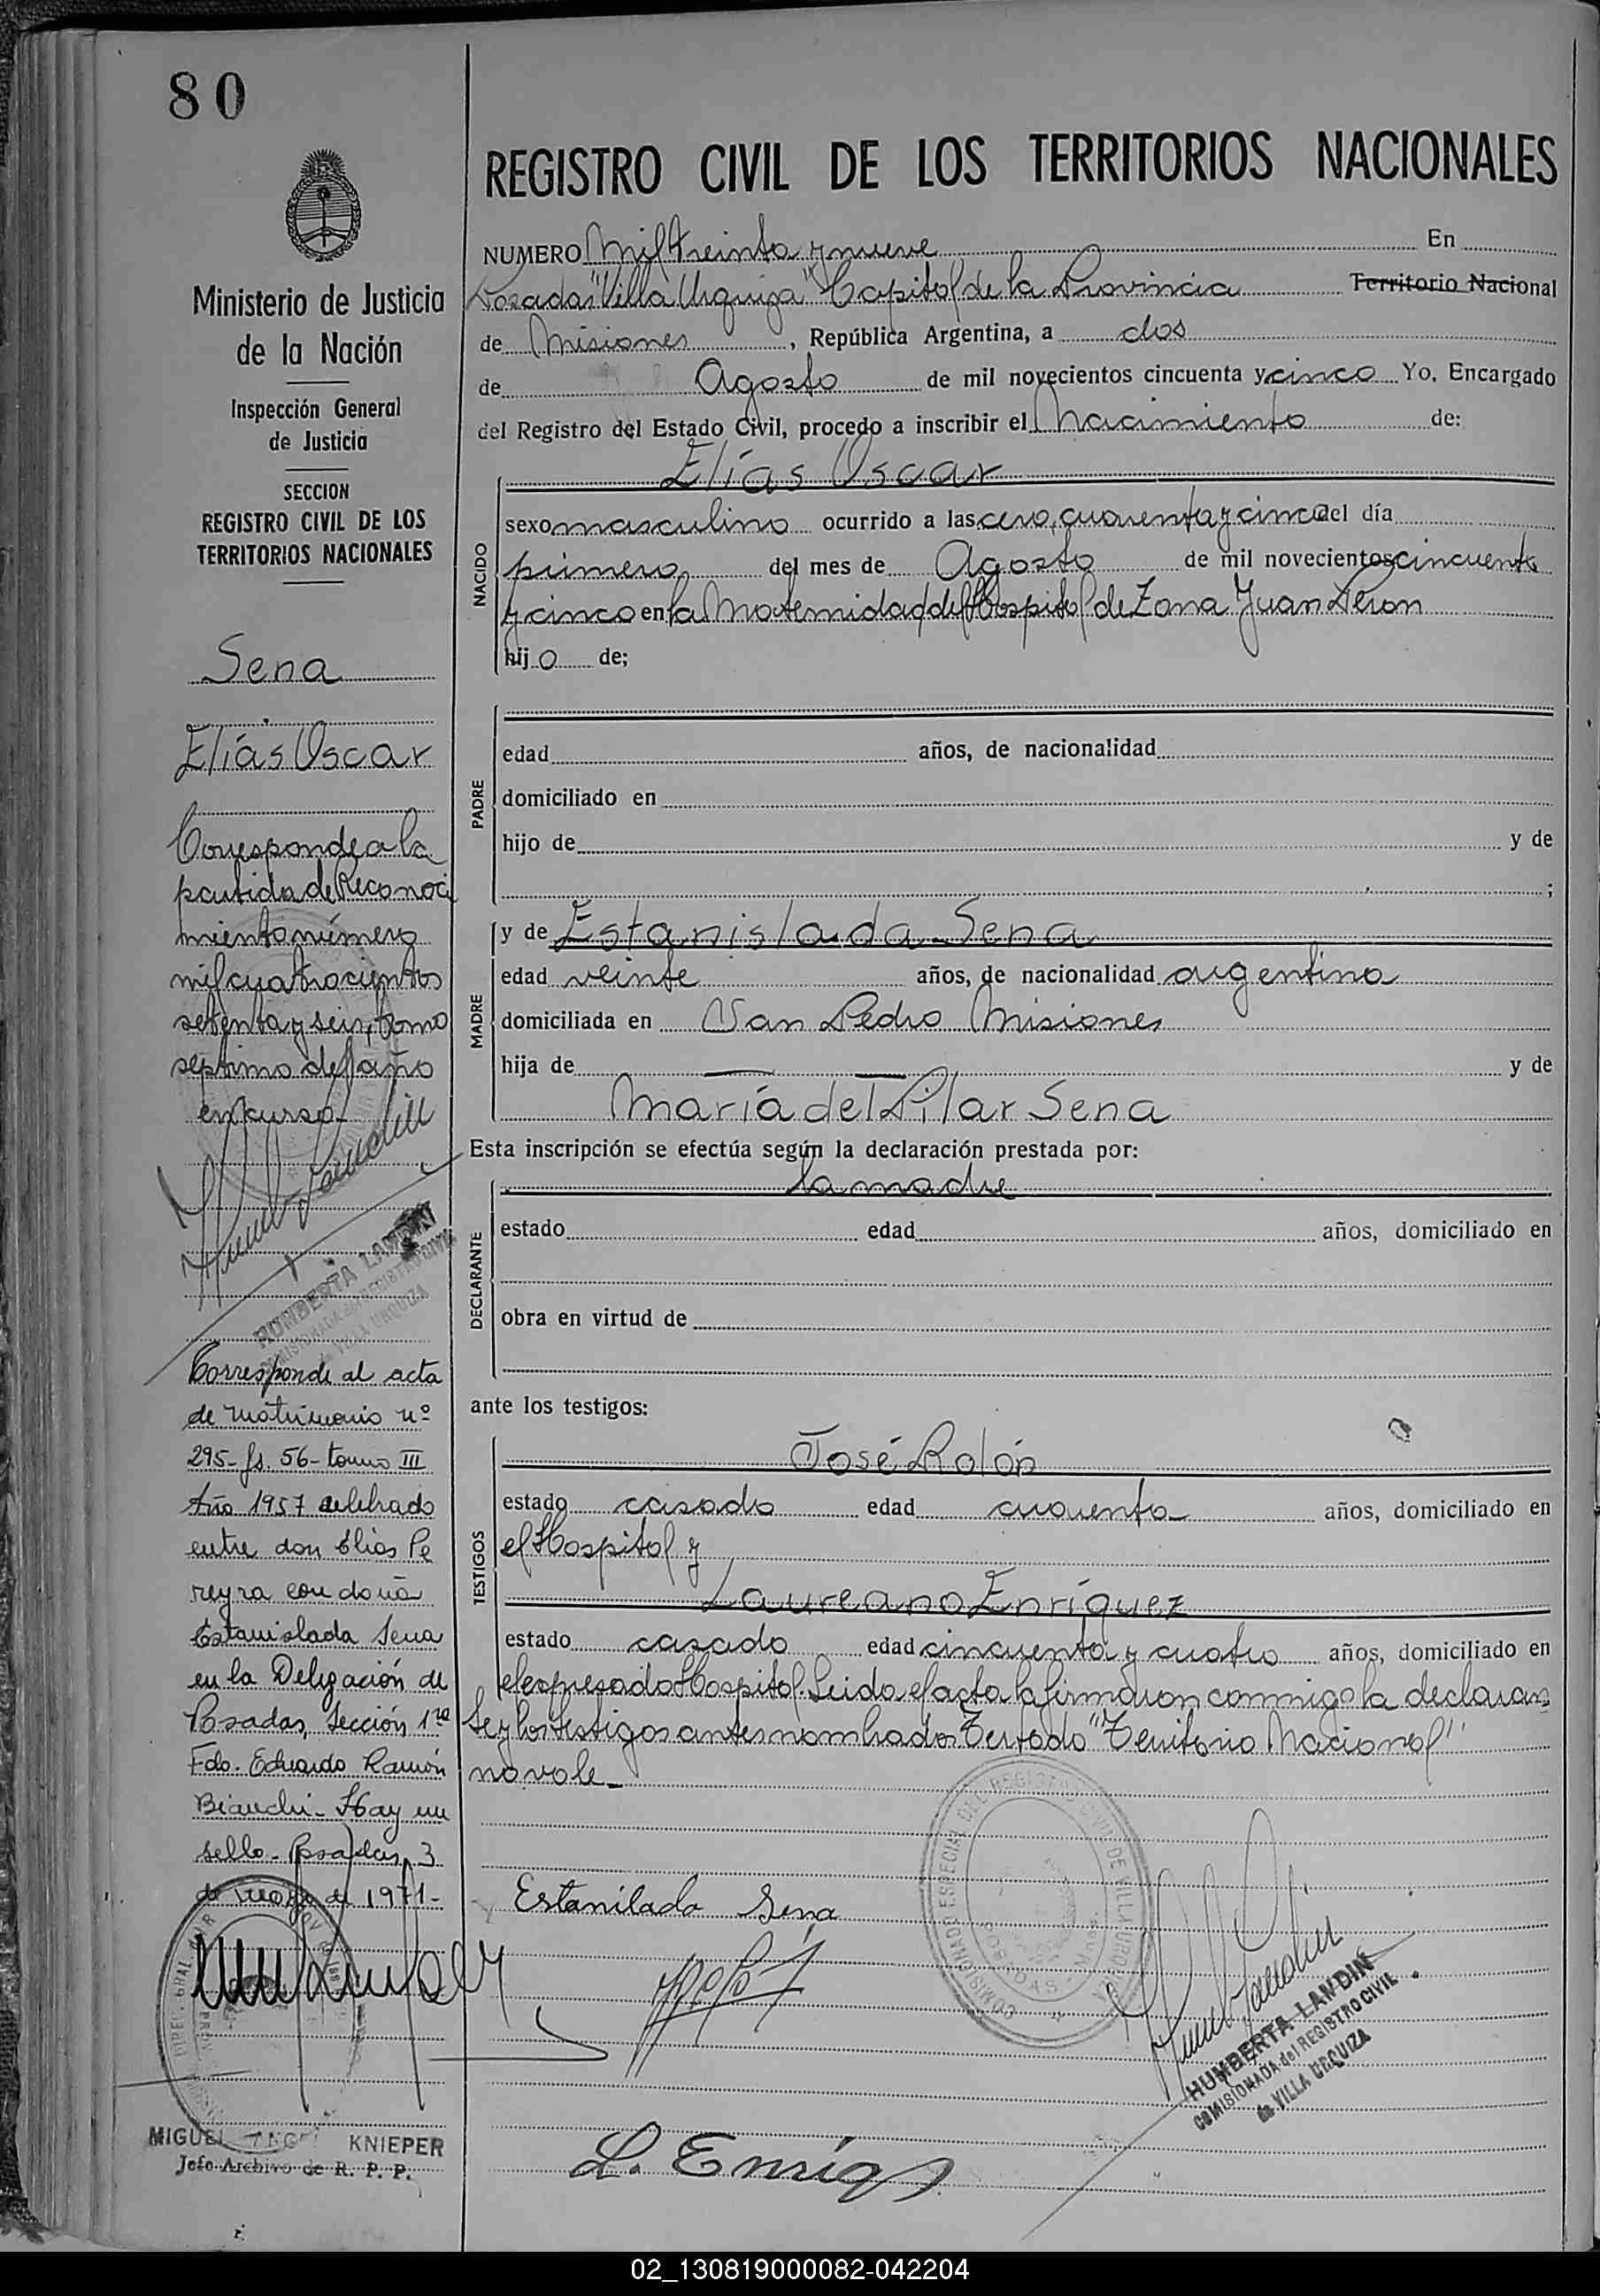 80
Ministerio de Justicia
de la Nación
Inspección General
de Justicia
SECCION
REGISTRO CIVIL DE LOS
TERRITORIOS NACIONALES
Sena
Elías Oscar
Corresponde a la
partida de Reconoci
miento número
mil cuatrocientos
setenta y seis, tomo
septimo del año
en curso
HUMBERTA LANDIN
COMISIONADA del REGISTRO CIVIL
de VILLA URQUIZA
Corresponde al acta
de Matrimonio nº
295- fs. 56- tomo III
Año 1957 celebrado
entre don Elias Pe
reyra con doña
Estanislada Sena
en la Delegación de
Posadas, Sección 1ra
Fdo. Eduardo Ramón
Bianchi- Hay un
sello- Posadas, 3
de mayo de 1971-
MIGUEL ANGEL KNIEPER
Jefe Archivo de R. P. P.
REGISTRO CIVIL DE LOS TERRITORIOS NACIONALES
NUMERO Mil treinta y nueve En
Posadas "Villa Urquiza" Capital de la Provincia Territorio Nacional
de Misiones, República Argentina, a dos
de Agosto de mil novecientos cincuenta y cinco Yo, Encargado
del Registro del Estado Civil, procedo a inscribir el Nacimiento de:
Elías Oscar
NACIDO
sexo masculino ocurrido a las cero, cuarenta y cinco del día
primero del mes de Agosto de mil novecientos cincuenta
y cinco en la Maternidad del Hospital de Zona Juan Peron
hijo de;
PADRE
edad años, de nacionalidad
domiciliado en
hijo de y de
;
MADRE
y de Estanislada Sena
edad veinte años, de nacionalidad argentina
domiciliada en San Pedro Misiones
hija de y de
María del Pilar Sena
Esta inscripción se efectúa según la declaración prestada por:
la madre
DECLARANTE
estado edad años, domiciliado en
obra en virtud de
ante los testigos:
TESTIGOS
José Rolón
estado casado edad cuarenta años, domiciliado en
el Hospital y
Laureano Enríquez
estado casado edad cincuenta y cuatro años, domiciliado en
el expresado Hospital. Leida el acta la firmaron conmigo la declaran
te y los testigos antes nombrados Testado "Territorio Nacional"
no vale-
COMISIONADO ESPECIAL DEL REGISTRO CIVIL DE VILLA URQUIZA
POSADAS - Mnes.
Estanilada Sena
L. Enriq
HUMBERTA LANDIN
COMISIONADA del REGISTRO CIVIL
de VILLA URQUIZA
02_130819000082-042204